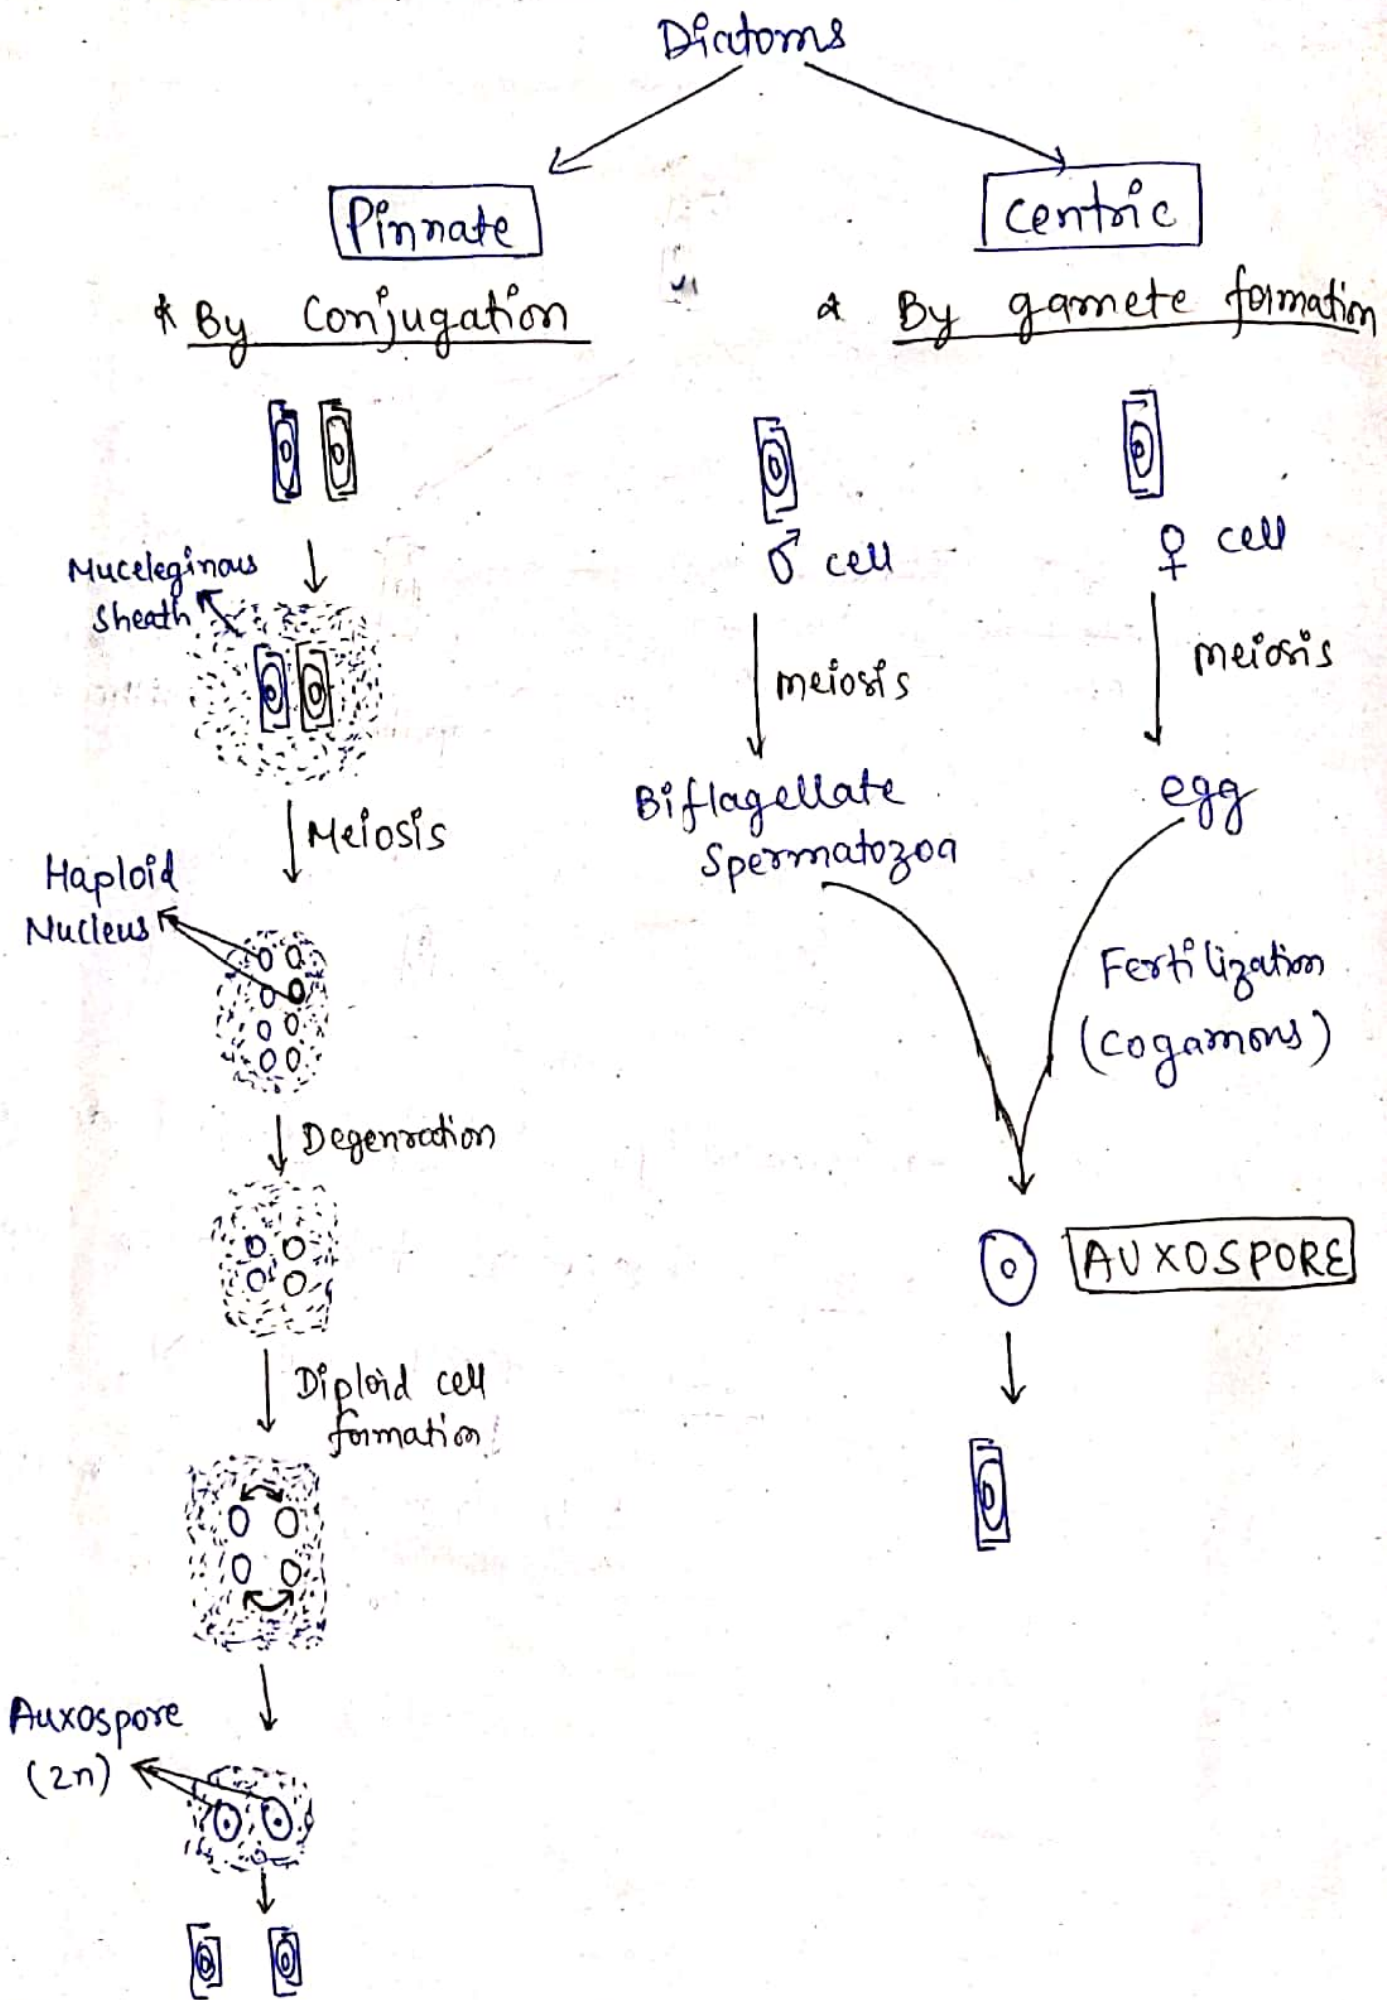 Diatoms
Pinnate
* By Conjugation
Muceleginous
Sheath
Meiosis
Haploid
Nucleus
Degenration
Diploid cell
formation
Auxospore
(2n)
Centric
* By gamete formation
♂ cell
♀ cell
meiosis
meiosis
Biflagellate
Spermatozoa
egg
Fertilization
(Cogamous)
AUXOSPORE